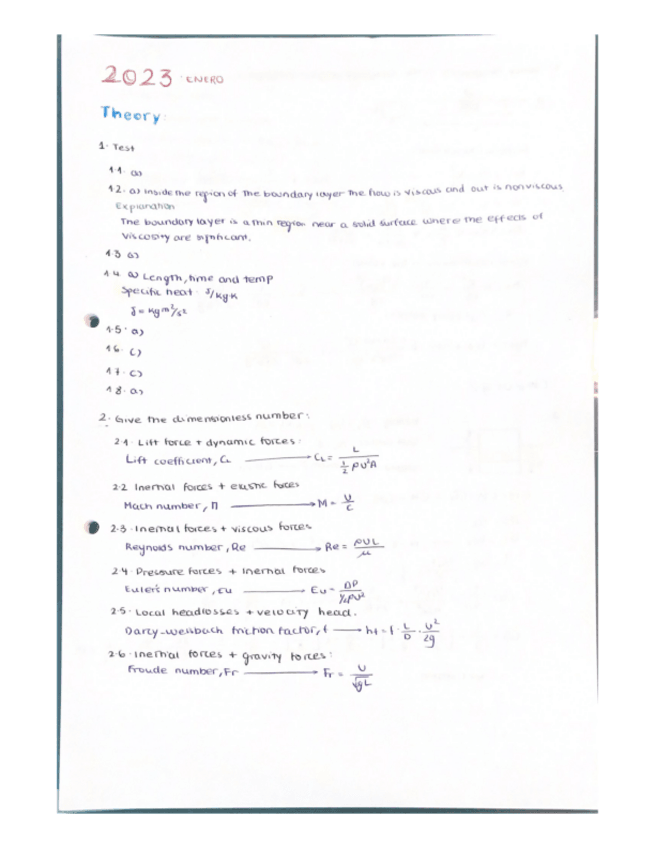 2023 · ENERO
Theory:
1. Test
1.1 a)
1.2. a) Inside the region of the boundary layer the flow is viscous and out is nonviscous
Explanation
The boundary layer is a thin region near a solid surface where the effects of
viscosity are significant.
1.3 a)
1.4 a) Length, time and temp
Specific heat · J/kg K
J = kg m²/s²
1.5. a)
1.6. c)
1.7. c)
1.8. a)
2. Give the dimensionless number:
2.1. Lift force + dynamic forces:
Lift coefficient, CL → CL = L / ½ ρU²A
2.2 Inertial forces + elastic forces
Mach number, M → M = U/C
2.3. Inertial forces + viscous forces
Reynolds number, Re → Re = ρUL/μ
2.4. Pressure forces + Inertial forces
Euler's number, Eu → Eu = ΔP / ½ρU²
2.5. Local headlosses + velocity head.
Darcy-weisbach friction factor, f → hf = f · L/D · U²/2g
2.6. Inertial forces + gravity forces:
Froude number, Fr → Fr = U/√gL